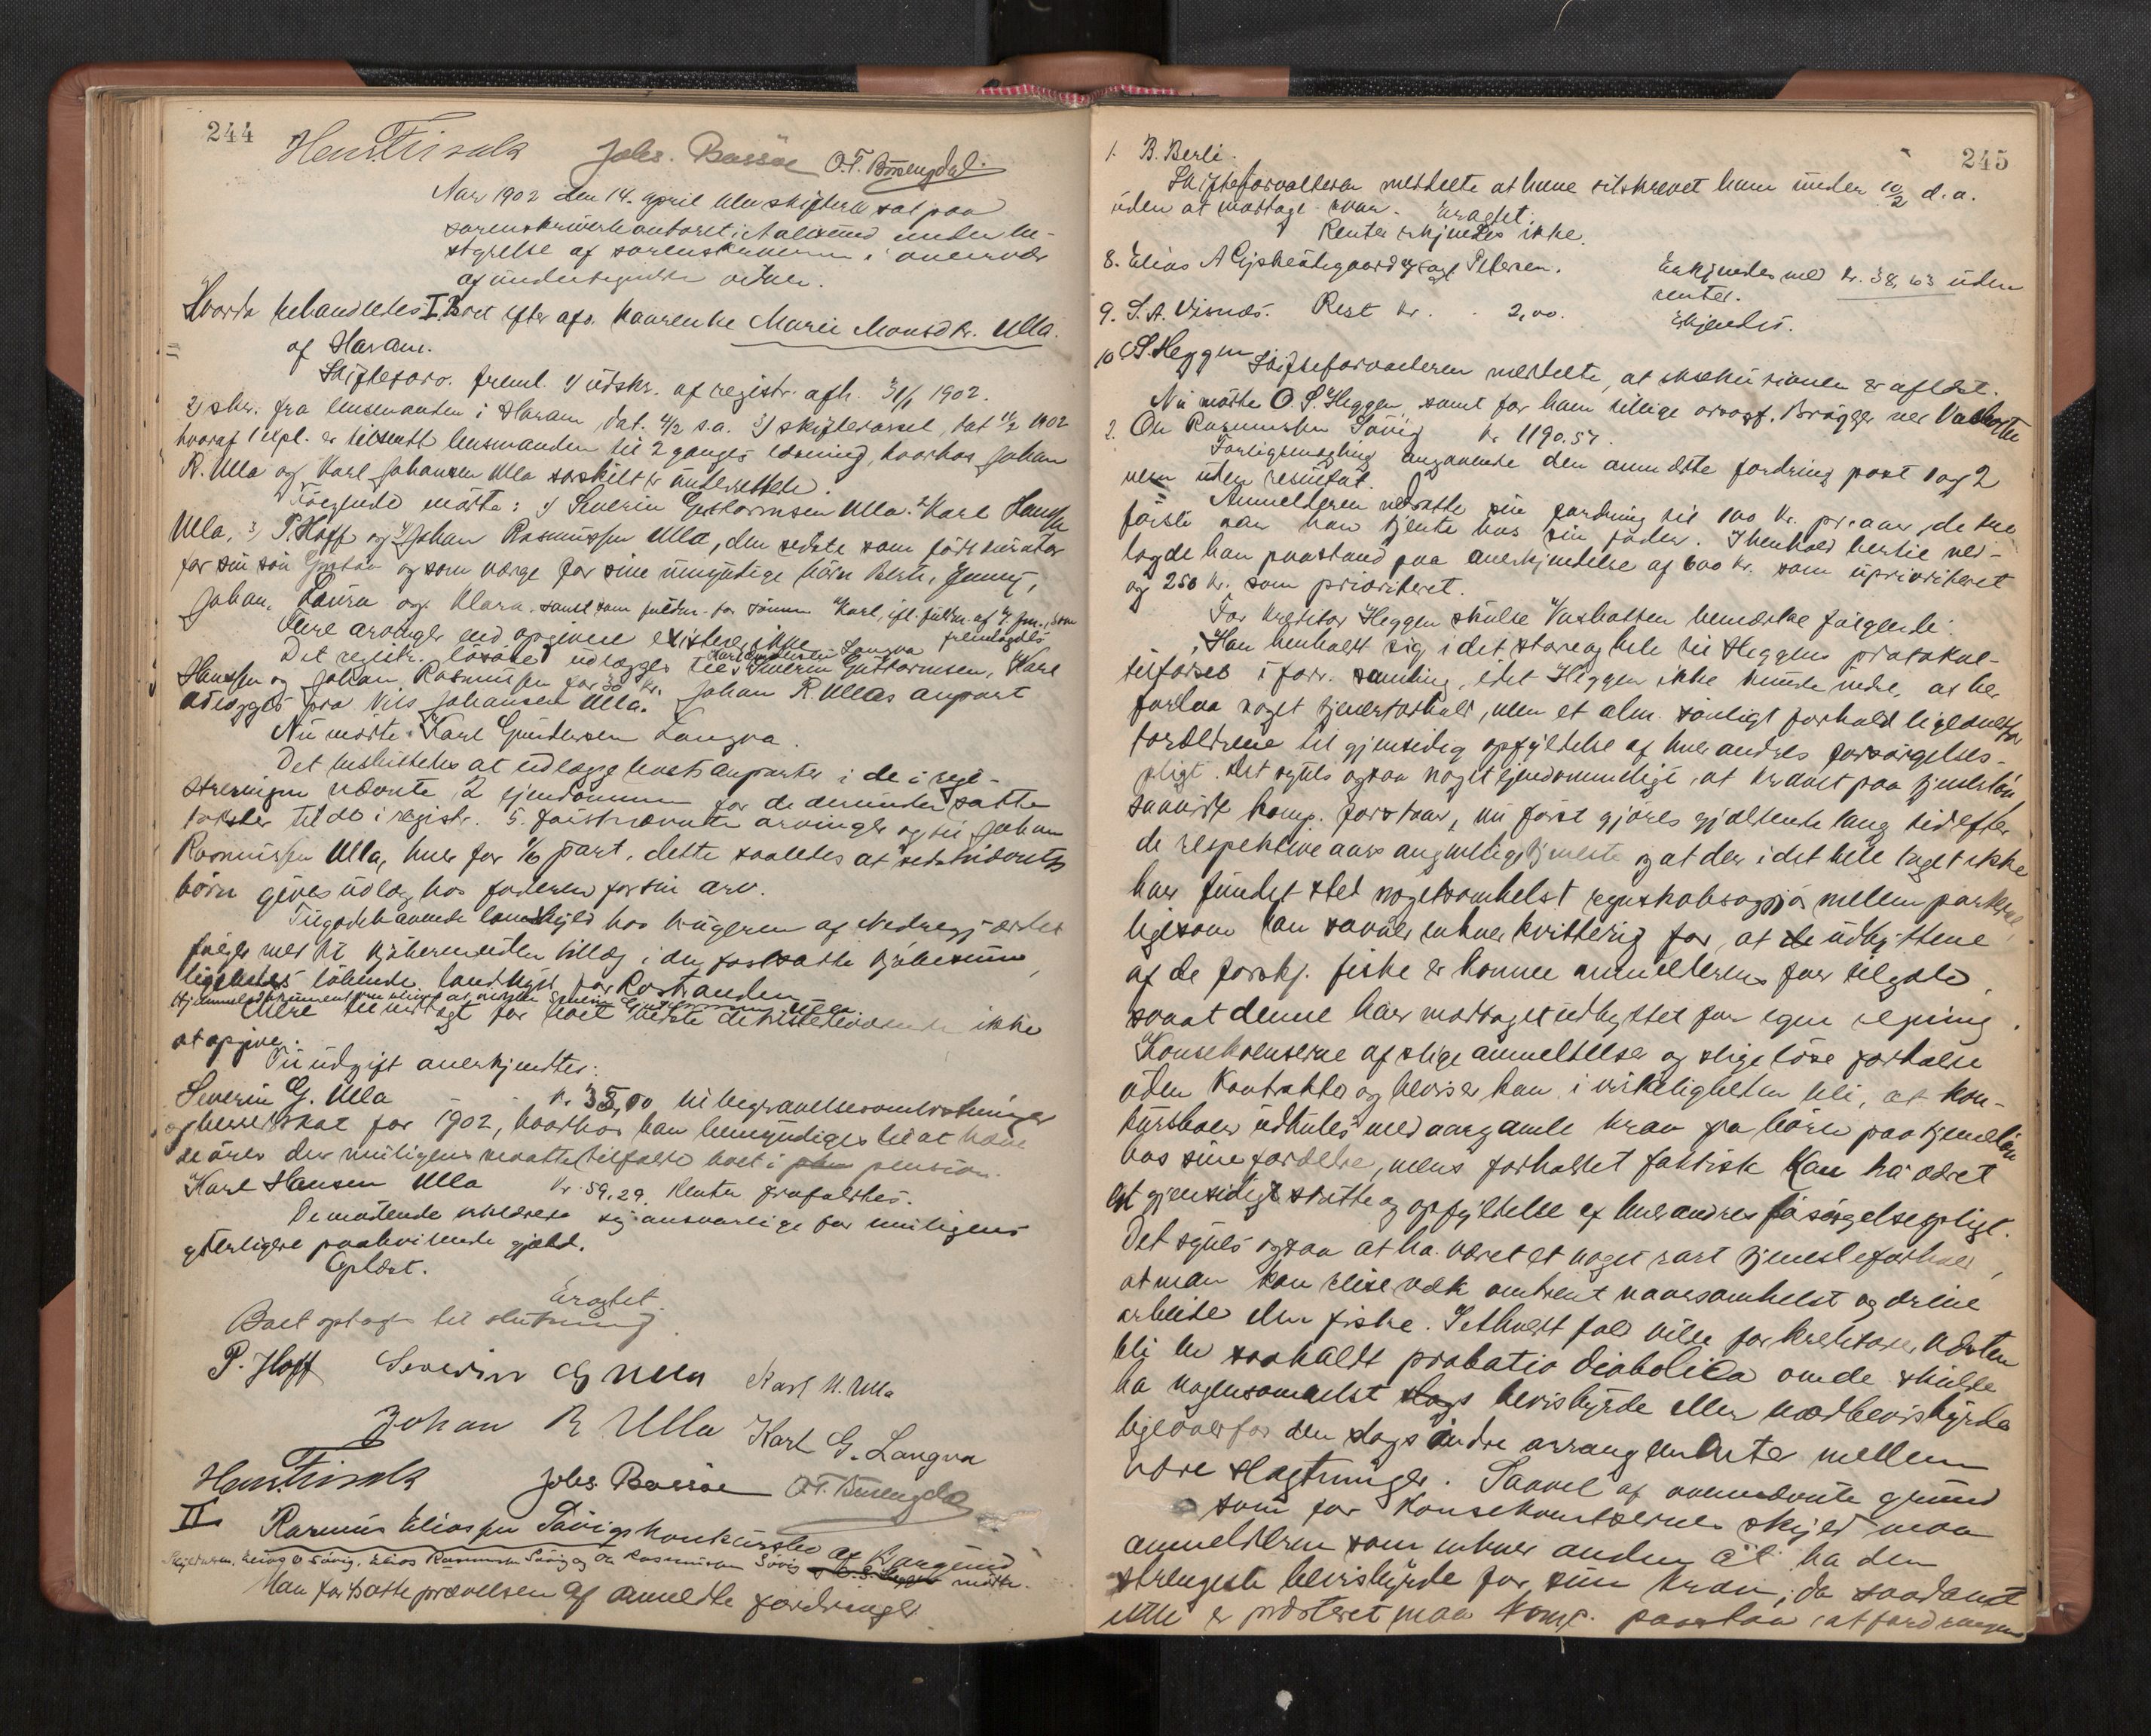 244
Joh. Bassöe O.T. Bonesgdal.
Aar 1902 den 14. april blev skifteret sat paa
sorenskriverkontoret i Aalesund under be-
styrelse af sorenskriveren i overvær
af undertegnede vidner.
Hvorda behandledes I. Boet efter afd. Laurentse Marie Monsdtr. Ulla
af Haram.
Skifteforv. freml. 1) udskr. af registr. afh. 31/1 1902.
2) skr. fra lensmanden i Haram dat. 4/2 s.a. 3) skiftevarsel, dat 11/2 1902
hvoraf 1 expl. er tilsendt lensmanden til 2 ganges læsning, hvorhos Johan
R. Ulla og Karl Johansen Ulla særskilt er underrettede.
Følgende mødte: 1) Severin Guttormsen Ulla. 2) Karl Hanssen
Ulla, 3) P. Hoff og 4) Johan Rasmussen Ulla, den sidste som født kurator
for sin søn Gustav og som værge for sine umyndige børn Berte, Jenny,
Johan, Laura og Klara. samt som fuldm. for sønnen Karl, ifl. fuldm. af som
fremlagdes
Flere arvinger end opgivne existerer ikke
Det registr. løsøre udlægges til Severin Guttormsen, Karl
Hanssen og Johan Rasmussen for 30 kr. Johan R. Ullas anpart
udlægges fra Nils Johansen Ulla.
Nu mødte Karl Gundersen Langva.
Det besluttedes at udlægge boets anparter i de i regi-
streringen nævnte 2 eiendomme for de derunder satte
takster til de i registr. 5. førstnævnte arvinger og til Johan
Rasmussen Ulla, hver for 1/6 part, dette saaledes at sidstnævntes
børn gives udlæg hos faderen for sin arv.
Tilgodehavende landskyld hos brugeren af Nedregjærdet
følger med til kjøberen uden tillæg i den fastsatte kjøbesum,
ligeledes løbende landskyld for Rostranden.
Mere til indtægt for boet vidste de tilstedeværende ikke
at opgive.
Til udgift anerkjendtes:
Severin G. Ulla kr. 35,00 til begravelsesomkostninger
og herredskat for 1902, hvorhos han bemyndiges til at hæve
de ører der muligens maatte tilfalde boet i pension.
Karl Hansen Ulla kr. 59,29. Renter frafaldtes.
De mødende erklærede sig ansvarlige for muligens
yderligere paahvilende gjæld.
Oplæst.
Eragtet.
Boet optages til slutning.
P. Hoff Severin G Ulla Karl H. Ulla
Johan R Ulla Karl G. Langva
Joh. Bassöe
II Rasmus Eliassen Søvigs konkursbo af Borgund
Elias Rasmussen Søvig og Ole Rasmussen Søvig mødte.
Man fortsatte prøvelsen af anmeldte fordringer
245
1. B. Berli.
Skifteforvalteren meddelte at have tilskrevet ham under 10/2 d.a.
uden at modtage svar. Eragtet.
Renter erkjendes ikke.
8. Elias A Gjskeødegaard Petersen. Erkjendes med kr. 38,63 uden
renter.
9. S.A. Visnes. Rest kr. 2,00. Erkjendes.
10. O.S. Heggen Skifteforvalteren meddelte, at exekutionen er aflæst.
Nu mødte O.S. Heggen samt for ham tillige overrsagf. Brügger ved Vasbotten
2. Ole Rasmussen Søvig kr 1190.57.
Forligsmægling angaaende den anmeldte fordring post 1 og 2
uden resultat.
Anmelderen nedsatte sin fordring til 100 kr. pr. aar, de tre
første aar han tjente hos sin fader. I henhold hertil ned-
lagde han paastand paa anerkjendelse af 600 kr. som uprioriteret
og 250 kr. som prioriteret.
For kreditor Heggen skulde Vasbotten bemærke følgende:
Han henholdt sig i det store og hele til Heggens protokol-
tilførsel i forr. samling, idet Heggen ikke kunde vide, at her
forlaa noget tjenerforhold, men et alm. sønligt forhold ligeoverfor
forældrene til gjensidig opfyldelse af hverandres forsørgelses-
pligt. Det synes ogsaa noget eiendommeligt, at kravet paa tjenesteløn,
saavidt komp. forstaar, nu først gjøres gjældende lang tid efter
de respektive aars angivelige tjeneste og at der i det hele taget ikke
har fundet sted nogetsomhelst regnskabsopgjør mellem parterne,
ligesom han savner enhver kvittering for, at udbyttene
af de forskj. fiske er kommet anmelderens far tilgode,
saa at denne har modtaget udbyttet for egen regning.
Konsekvenserne af slige anmeldelser og slige løse forhold
uden kontrakter og beviser kan i virkeligheden bli, at kon-
kursboer udhules med aargamle krav fra børn paa tjenesteløn
hos sine forældre, mens forholdet faktisk kan ha været
et gjensidigt støtte og opfyldelse af hverandres forsørgelsespligt.
Det synes ogsaa at ha været et noget rart tjenesteforhold,
at man kan reise væk omtrent naarsomhelst og drive
arbeide eller fiske. I ethvert fald vilde for kreditorer næsten
bli en saakaldt probatio diabolica om de skulde
ha nogensomhelst bevisbyrde eller modbevisbyrde
ligeoverfor den slags indre arrangementer mellem
nære slægtninger. Saavel af ovennævnte grund
som for konsekventsernes skyld maa
anmelderen som enhver anden ha den
strengeste bevisbyrde for sine krav; da saadant
ikke er præsteret maa komp. paastaa at fordringen